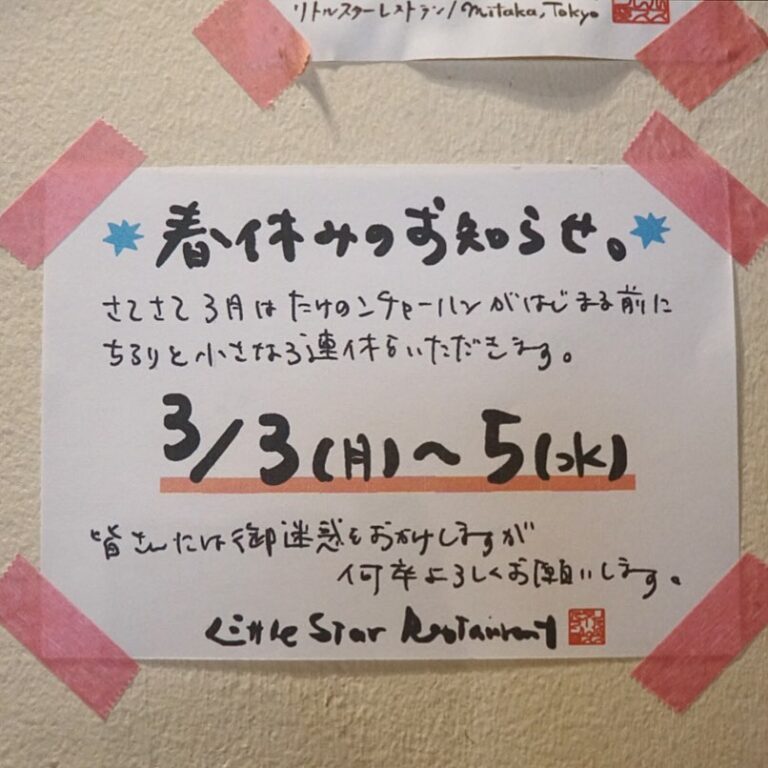 リトルスターレストラン/Mitaka, Tokyo
春休みのお知らせ。
さてさて3月はたけのこチャーハンがはじまる前に
ちろりと小さな3連休をいただきます。
3/3(月)〜5(水)
皆さんには御迷惑をおかけしますが
何卒よろしくお願いします。
Little Star Restaurant